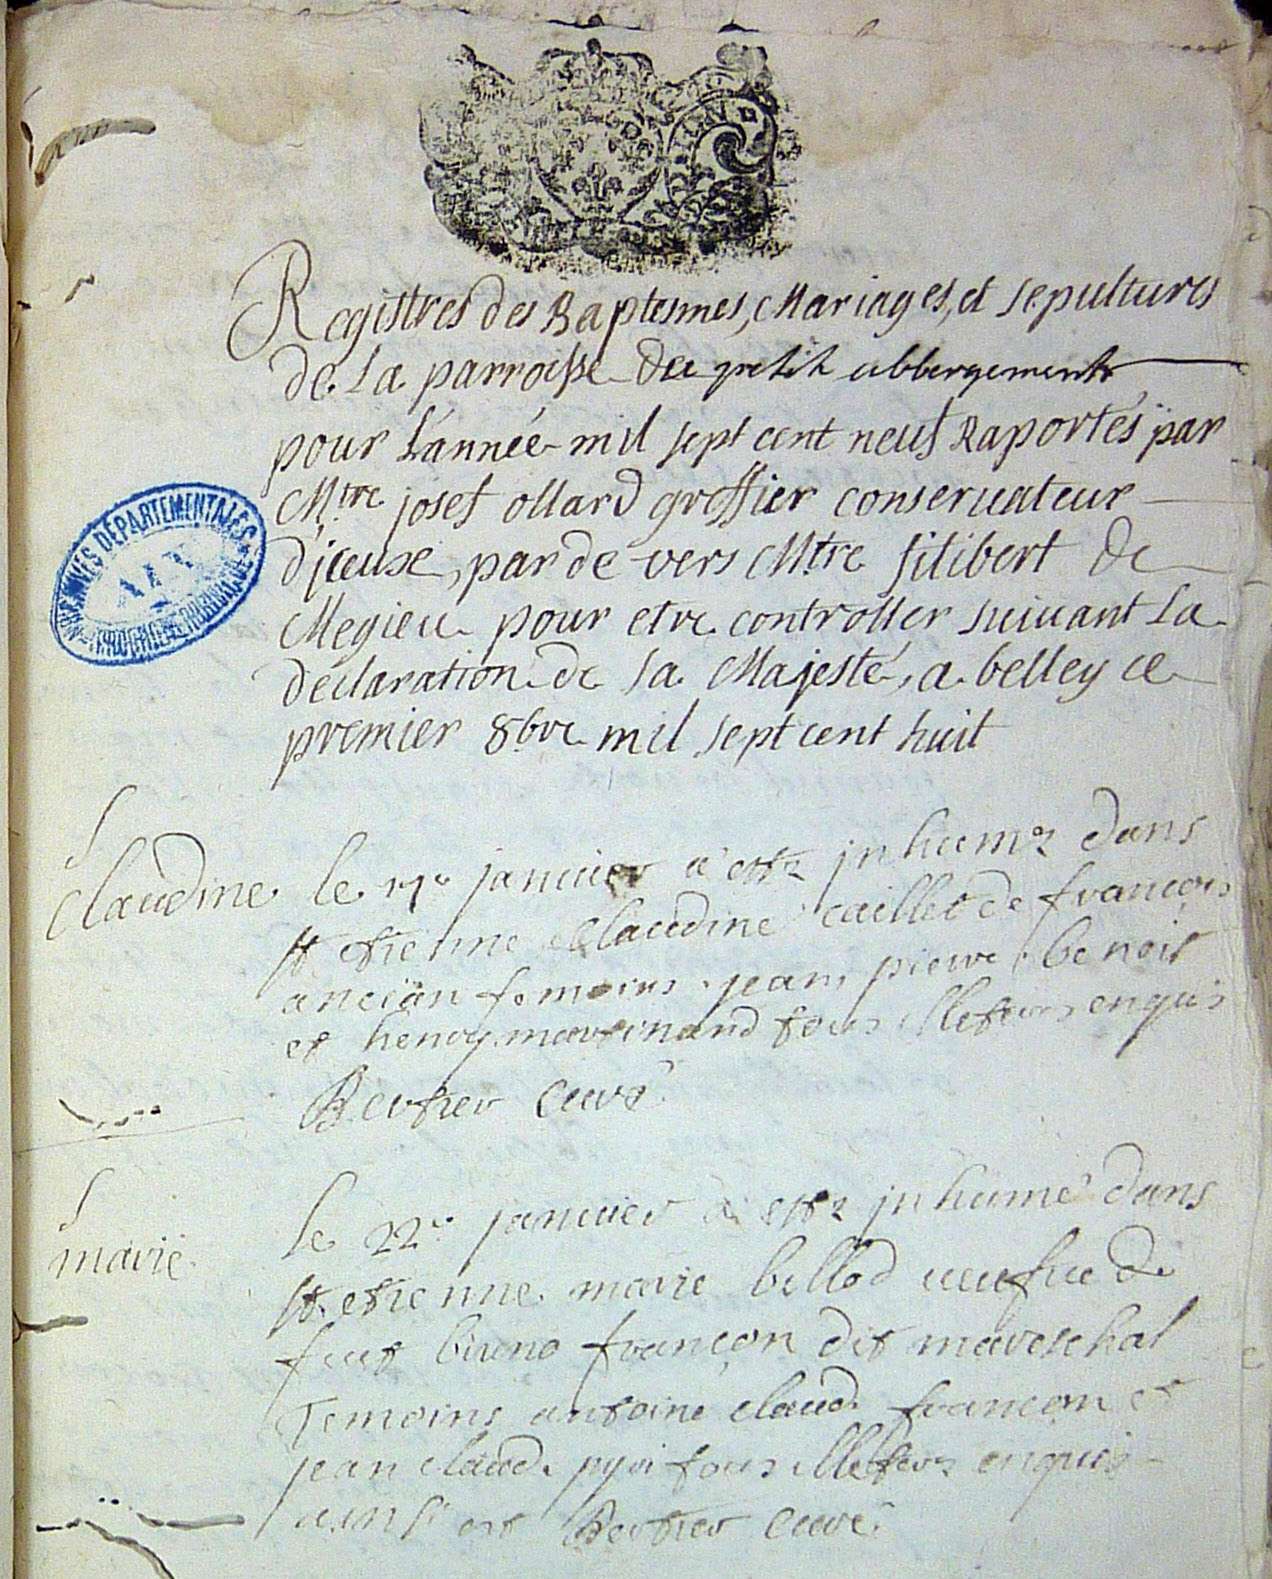 Registres des Baptesmes, Mariages, et sepultures
de la parroisse du petit abbergement
pour l'année mil sept cent neuf Raportés par
Mtre josef ollard greffier conservateur
d'jceux, par de vers Mtre filibert de
Megieu pour etre controller suivant la
déclaration de sa Majesté, a belley ce
premier 8bre mil sept cent huit
ARCHIVES DÉPARTEMENTALES
AIN
S
Claudine
le janvier a esté jnhumé dans
st etienne Claudine caillet de françois
ancian temoins jean pierre benoit
et henry martinand tous illeteres enquis
Bertier Curé
S
marie
le 22e janvier a esté jnhumé dans
st etienne marie billod veufve de
feut françon dit mareschal
Temoins antoine claude françon et
jean claude tous illeteres enquis
ainsi est Bertier Curé